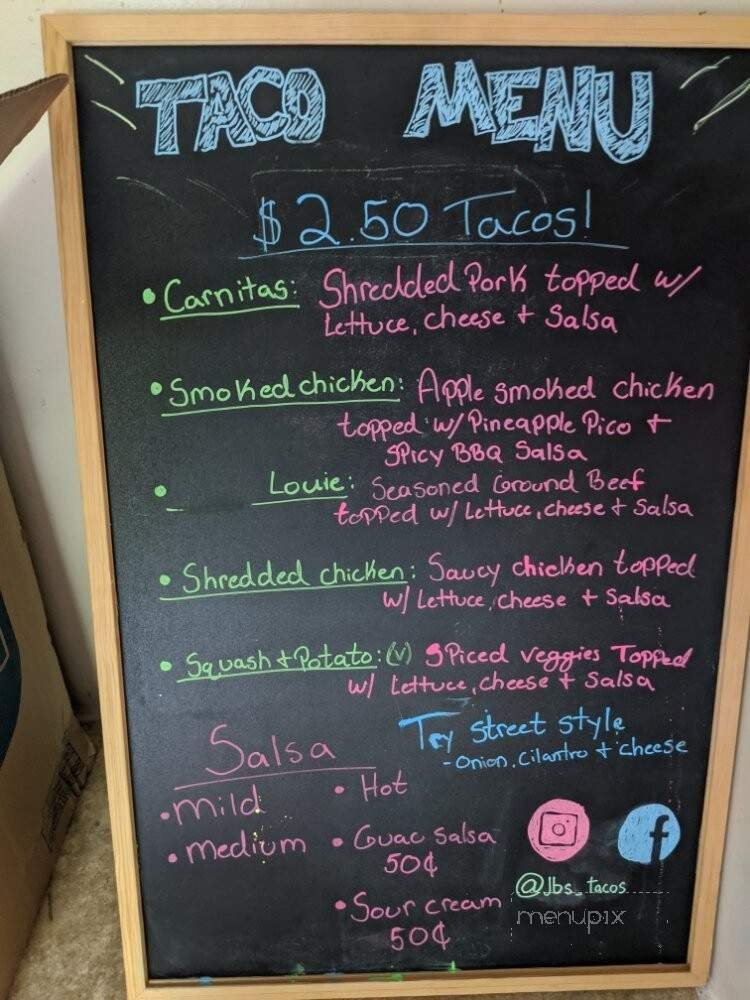 TACO MENU
$2.50 Tacos!
• Carnitas: Shredded Pork topped w/
Lettuce, cheese + Salsa
• Smoked chicken: Apple smoked chicken
topped w/ Pineapple Pico +
Spicy BBQ Salsa
• Louie: Seasoned Ground Beef
topped w/ Lettuce, cheese + Salsa
• Shredded chicken: Saucy chicken topped
w/ Lettuce, cheese + Salsa
• Squash + Potato: (v) Spiced veggies Topped
w/ Lettuce, cheese + Salsa
Try Street style
- Onion, Cilantro + cheese
Salsa
• mild
• medium
• Hot
• Guac Salsa
50¢
• Sour cream
50¢
f
@Jbs_tacos
menupix